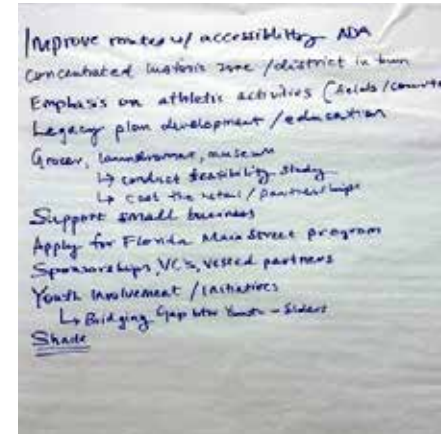 Improve routes w/ accessibility ADA
Concentrated historic zone / district in
Emphasis on athletic activities (fields/courts
Legacy plan development / education
Grocer, laundromat, museum
↳ conduct feasibility study
↳ cost the retail / partnerships
Support small business
Apply for Florida Main Street program
Sponsorships, VC's, vested partners
Youth Involvement / Initiatives
↳ Bridging Gap btw Youth - Elders
Shade